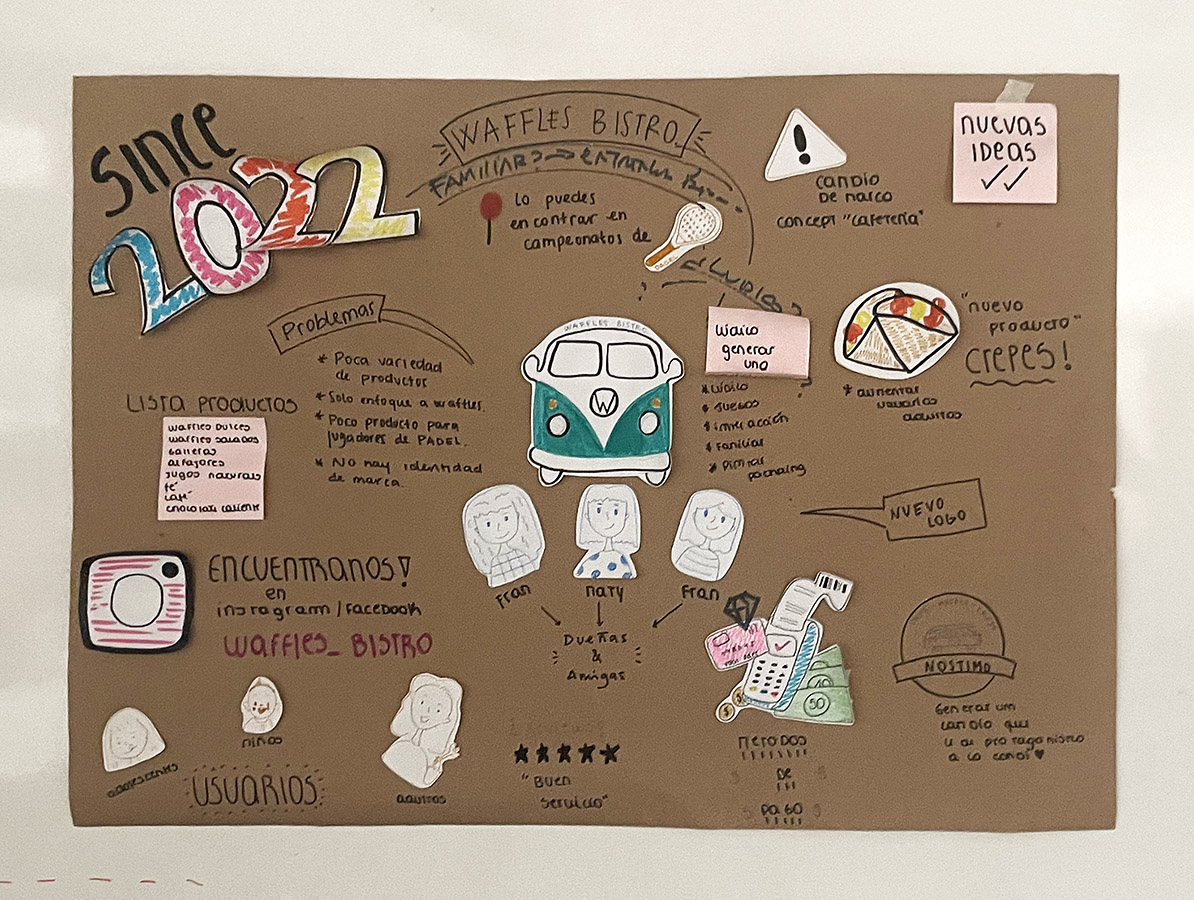 SINCE
2022
WAFFLES BISTRO
FAMILIAR?
Lo puedes
encontrar en
campeonatos de
PADEL
CAMBIO
DE MARCO
CONCEPT "CAFETERÍA"
nuevas
IDEAS
Problemas
* Poca variedad
de productos
* Solo enfoque a waffles.
* Poco producto para
jugadores de PADEL.
* No hay identidad
de marca.
LISTA PRODUCTOS
WAFFLES DULCES
WAFFLES SALADOS
GALLETAS
ALFAJORES
JUGOS NATURALES
té
café
chocolate caliente
WAFFLES BISTRO
W
¿LUDICO?
generar
uno
* JUEGOS
* interacción
* Familiar
"nuevo
producto"
CREPES!
* aumentar
usuarios
adultos
NUEVO
LOGO
Fran
naty
Fran
Dueñas
&
Amigas
ENCUENTRANOS!
en
instagram / Facebook
WAFFLES_BISTRO
adolescentes
niños
adultos
USUARIOS
"Buen
servicio"
50
METODOS
DE
PAGO
NOSTIMO
Generar un
cambio que